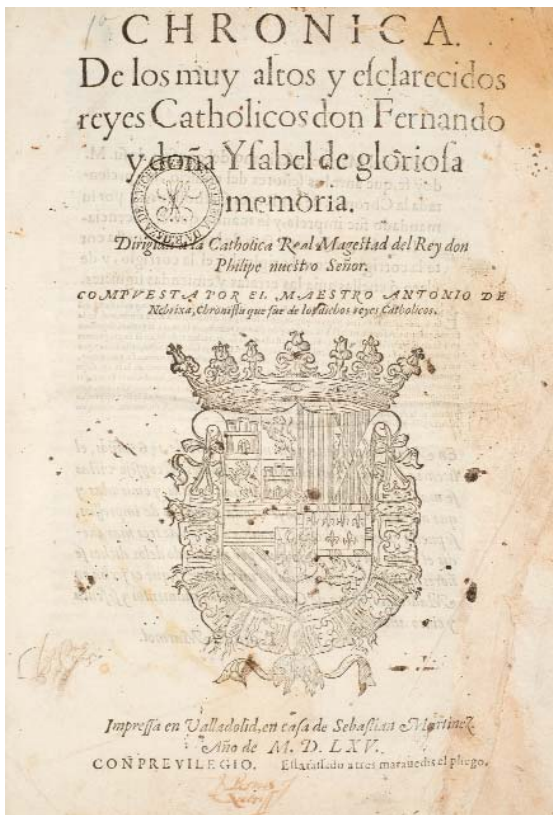 CHRONICA.
De los muy altos y esclarecidos
reyes Catholicos don Fernando
y doña Ysabel de gloriosa
memoria.
Dirigida a la Catholica Real Magestad del Rey don
Philipe nuestro Señor.
COMPVESTA POR EL MAESTRO ANTONIO DE
Nebrixa, Chronista que fue de los dichos reyes Catholicos.
Impressa en Valladolid, en casa de Sebastian Martinez.
Año de M. D. LXV.
CON PREVILEGIO. Esta tassado a tres marauedis el pliego.